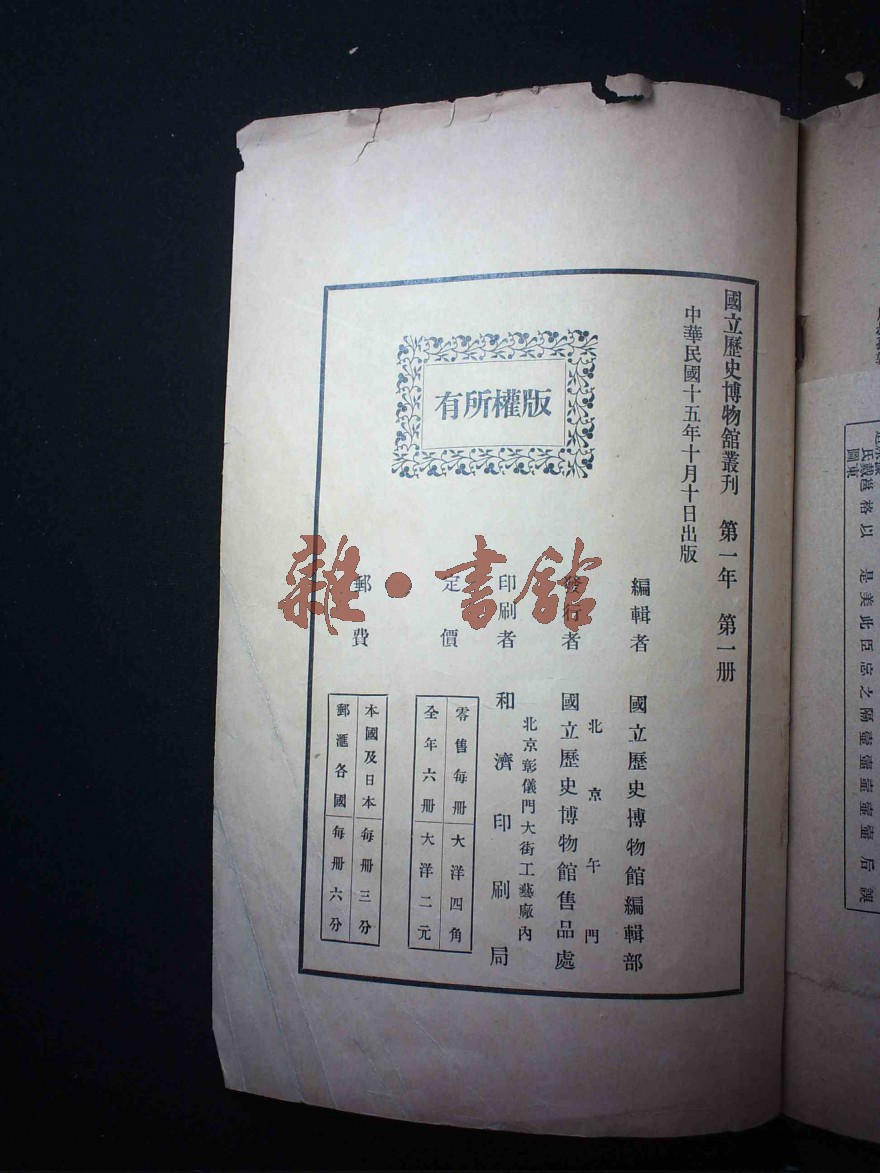 國立歷史博物館叢刊 第一年 第一册
中華民國十五年十月十日出版
版權所有
編輯者 國立歷史博物館編輯部
北京午門
發行者 國立歷史博物館售品處
北京彰儀門大街工藝廠內
印刷者 和濟印刷局
定價
零售每册 大洋四角
全年六册 大洋二元
郵費
本國及日本 每册三分
郵滙各國 每册六分
雜·書館
格以 是美此臣忘之隔壺壺壺壺壺后誤